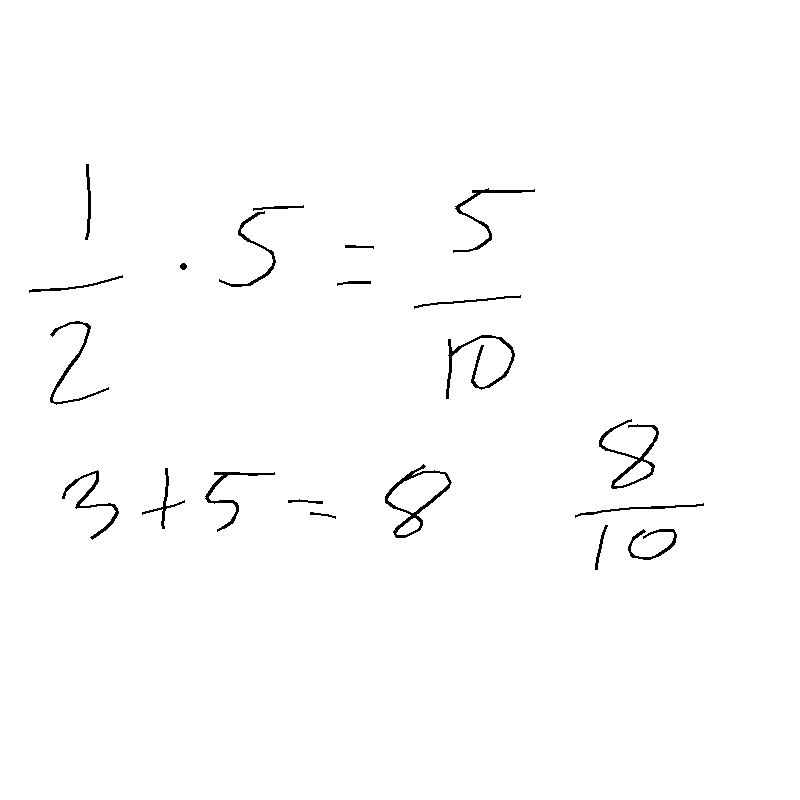 1/2 · 5 = 5/10
3 + 5 = 8 8/10